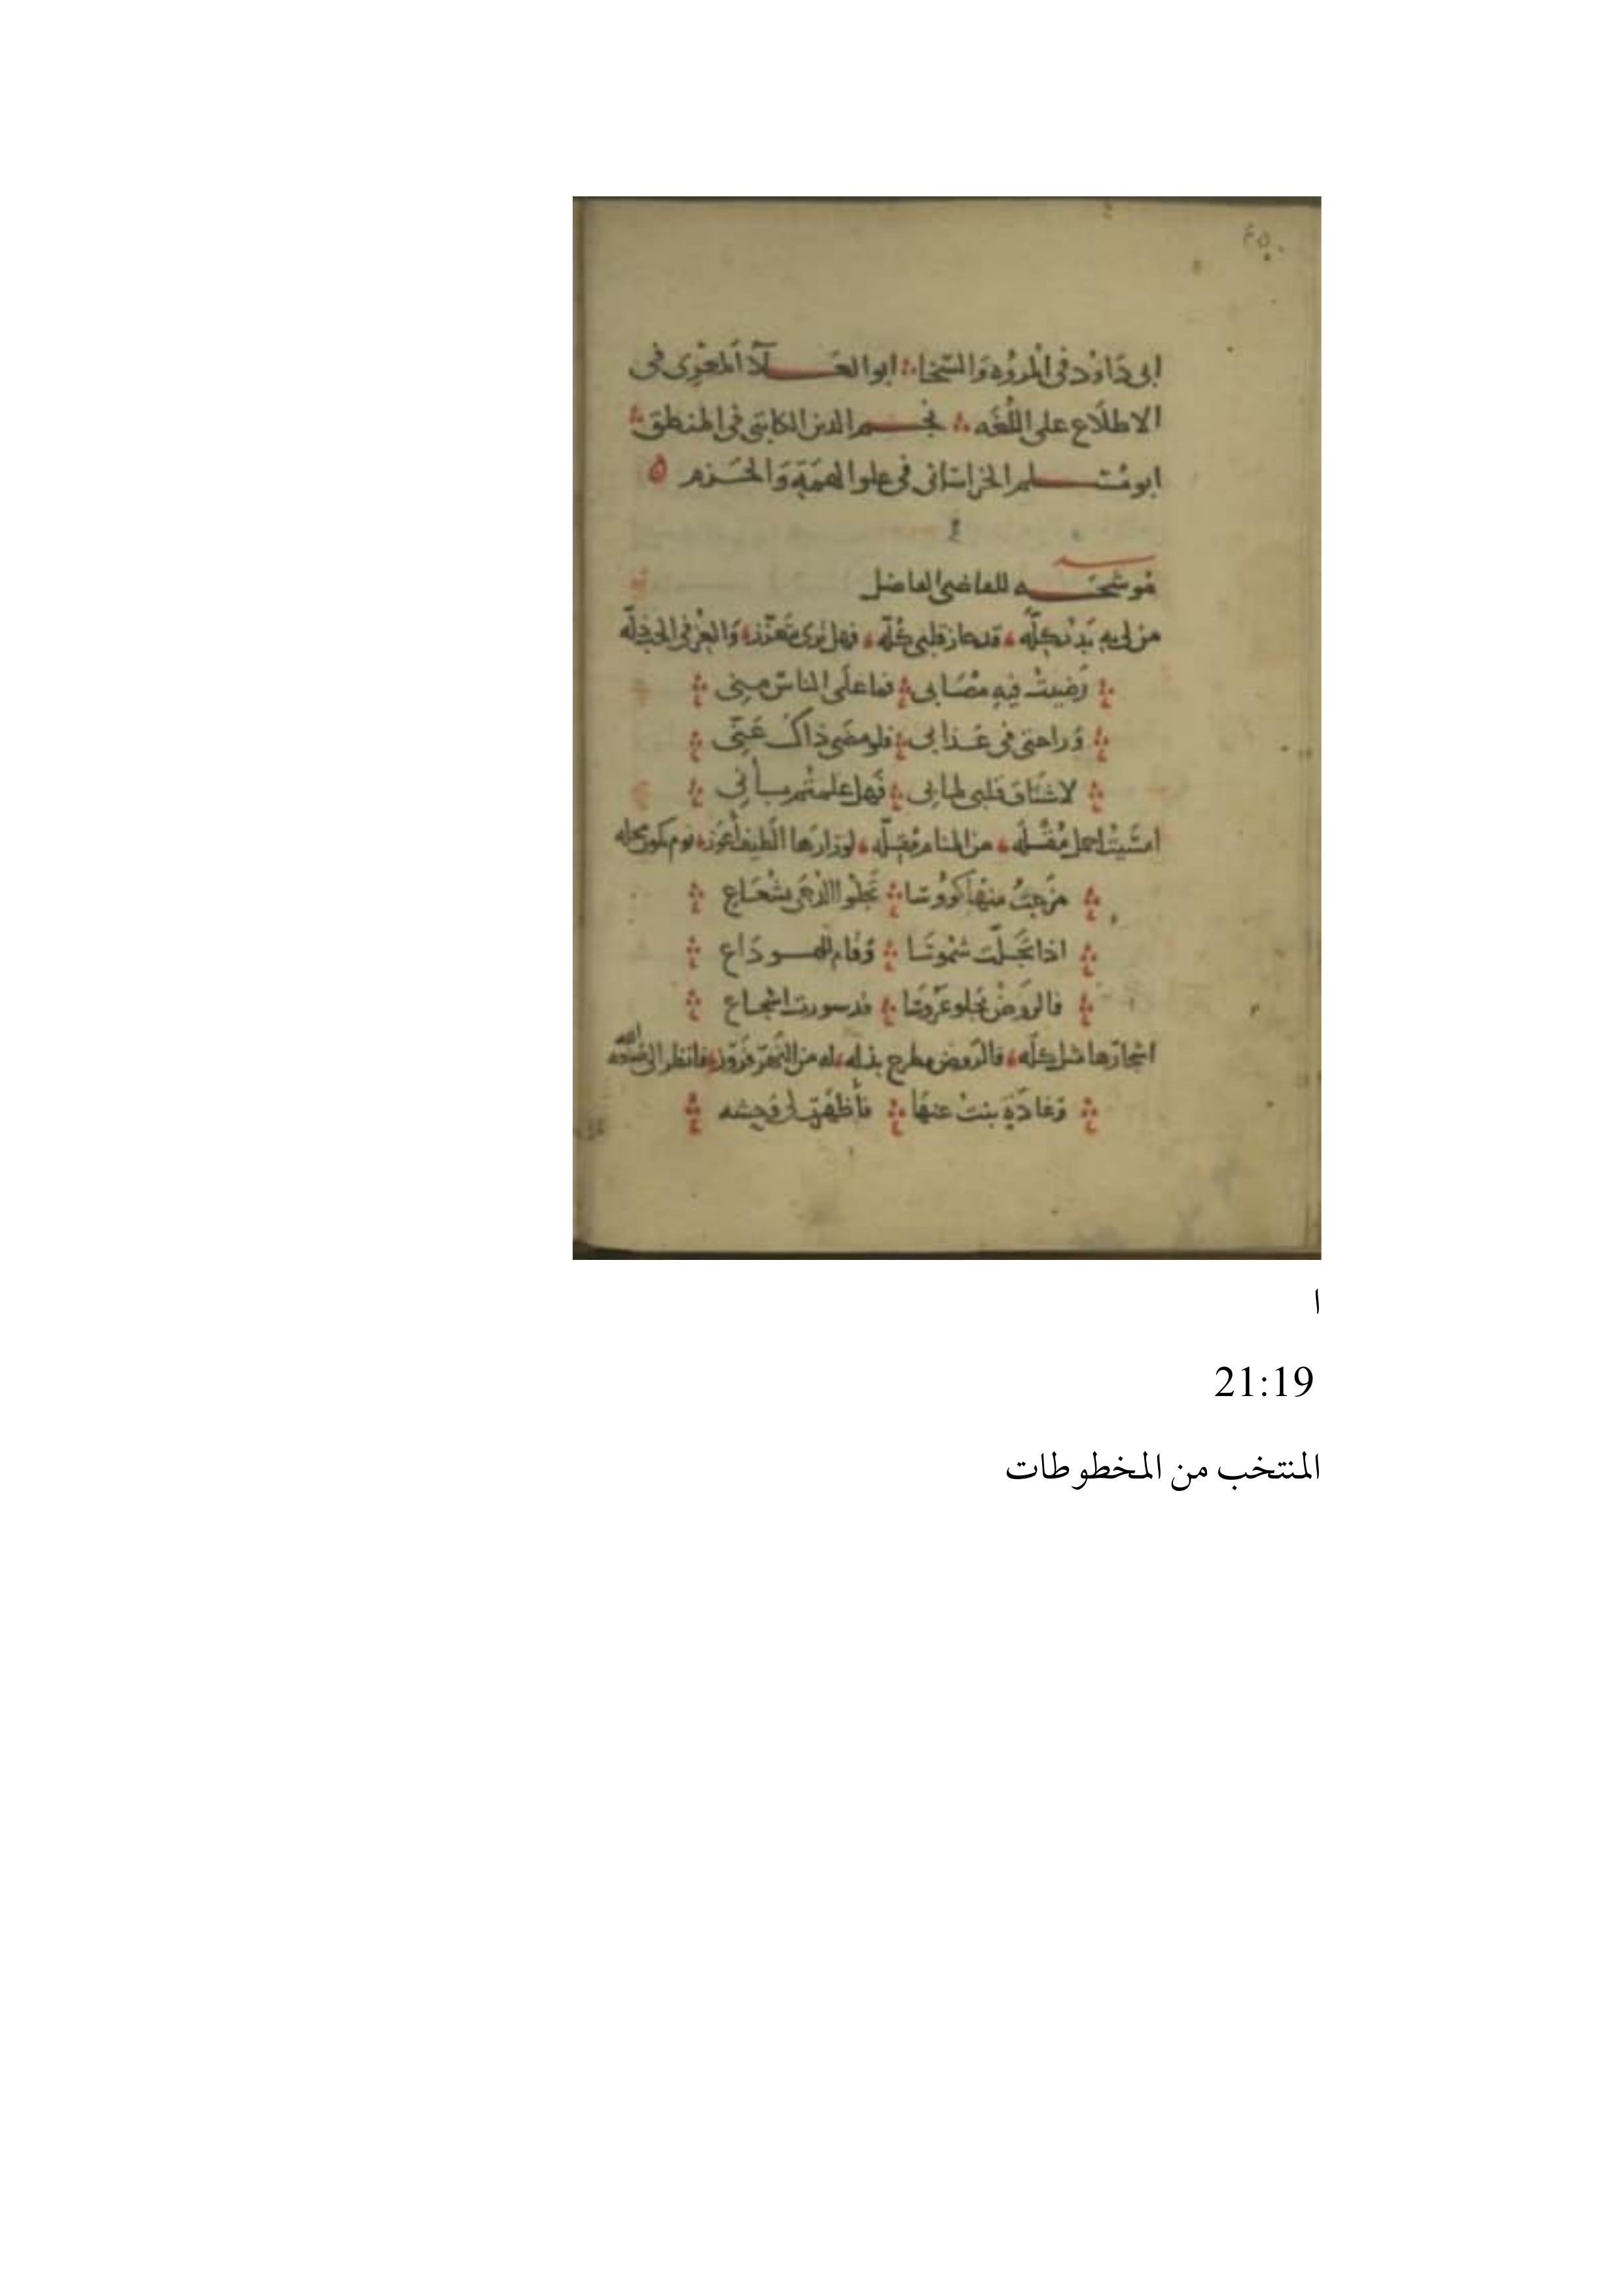 ابى دَاوُد فى المرُوه وَالسّخا ابوا العَلآ المعَرِى فى
الاطلَاع على اللُّغَه نجم الدين الكاتبى فى المنطق
ابو مُسلم الخراسَانى فى علو الهمَّةِ وَالحَزم ه
مُوشحَه للقاضى الفاضل
من لى بهِ بَدْر كِلّه قد حاز قلبى كُلّه فهل ترى يتعَزّز وَالعِزّ فى الحب ذلّه
رَضيتُ فيِهِ مصَابى فما علَى الناسّ مِنِى
وَراحتى فى عَذابى فلو مضَى ذاكَ عَنّى
لاشتاق قلبى لما بى فَهل علمتُم بأنِى
امسَيْت احمل مُقْلَه من المنام مُقِلّه لو زارهَا الطيف أعْوَز نوم يكون محله
مزَجتُ منهَا كؤوسَا تجَلْوا الدُجَى بشعَاع
اذا تجَلّت شمُوسَا وَقام للهو دَاع
فالروَضْ يجلو عَرُوسَا قد سورت اشجاع
اشجارهَا شل كلّه فالروض مطرح بذله له من النَهر فروز فانظر الى صنعة الله
وَغادَةٍ بنتُ عنهَا فأظهَرت لى وَحِشه
ا
21:19
المنتخب من المخطوطات